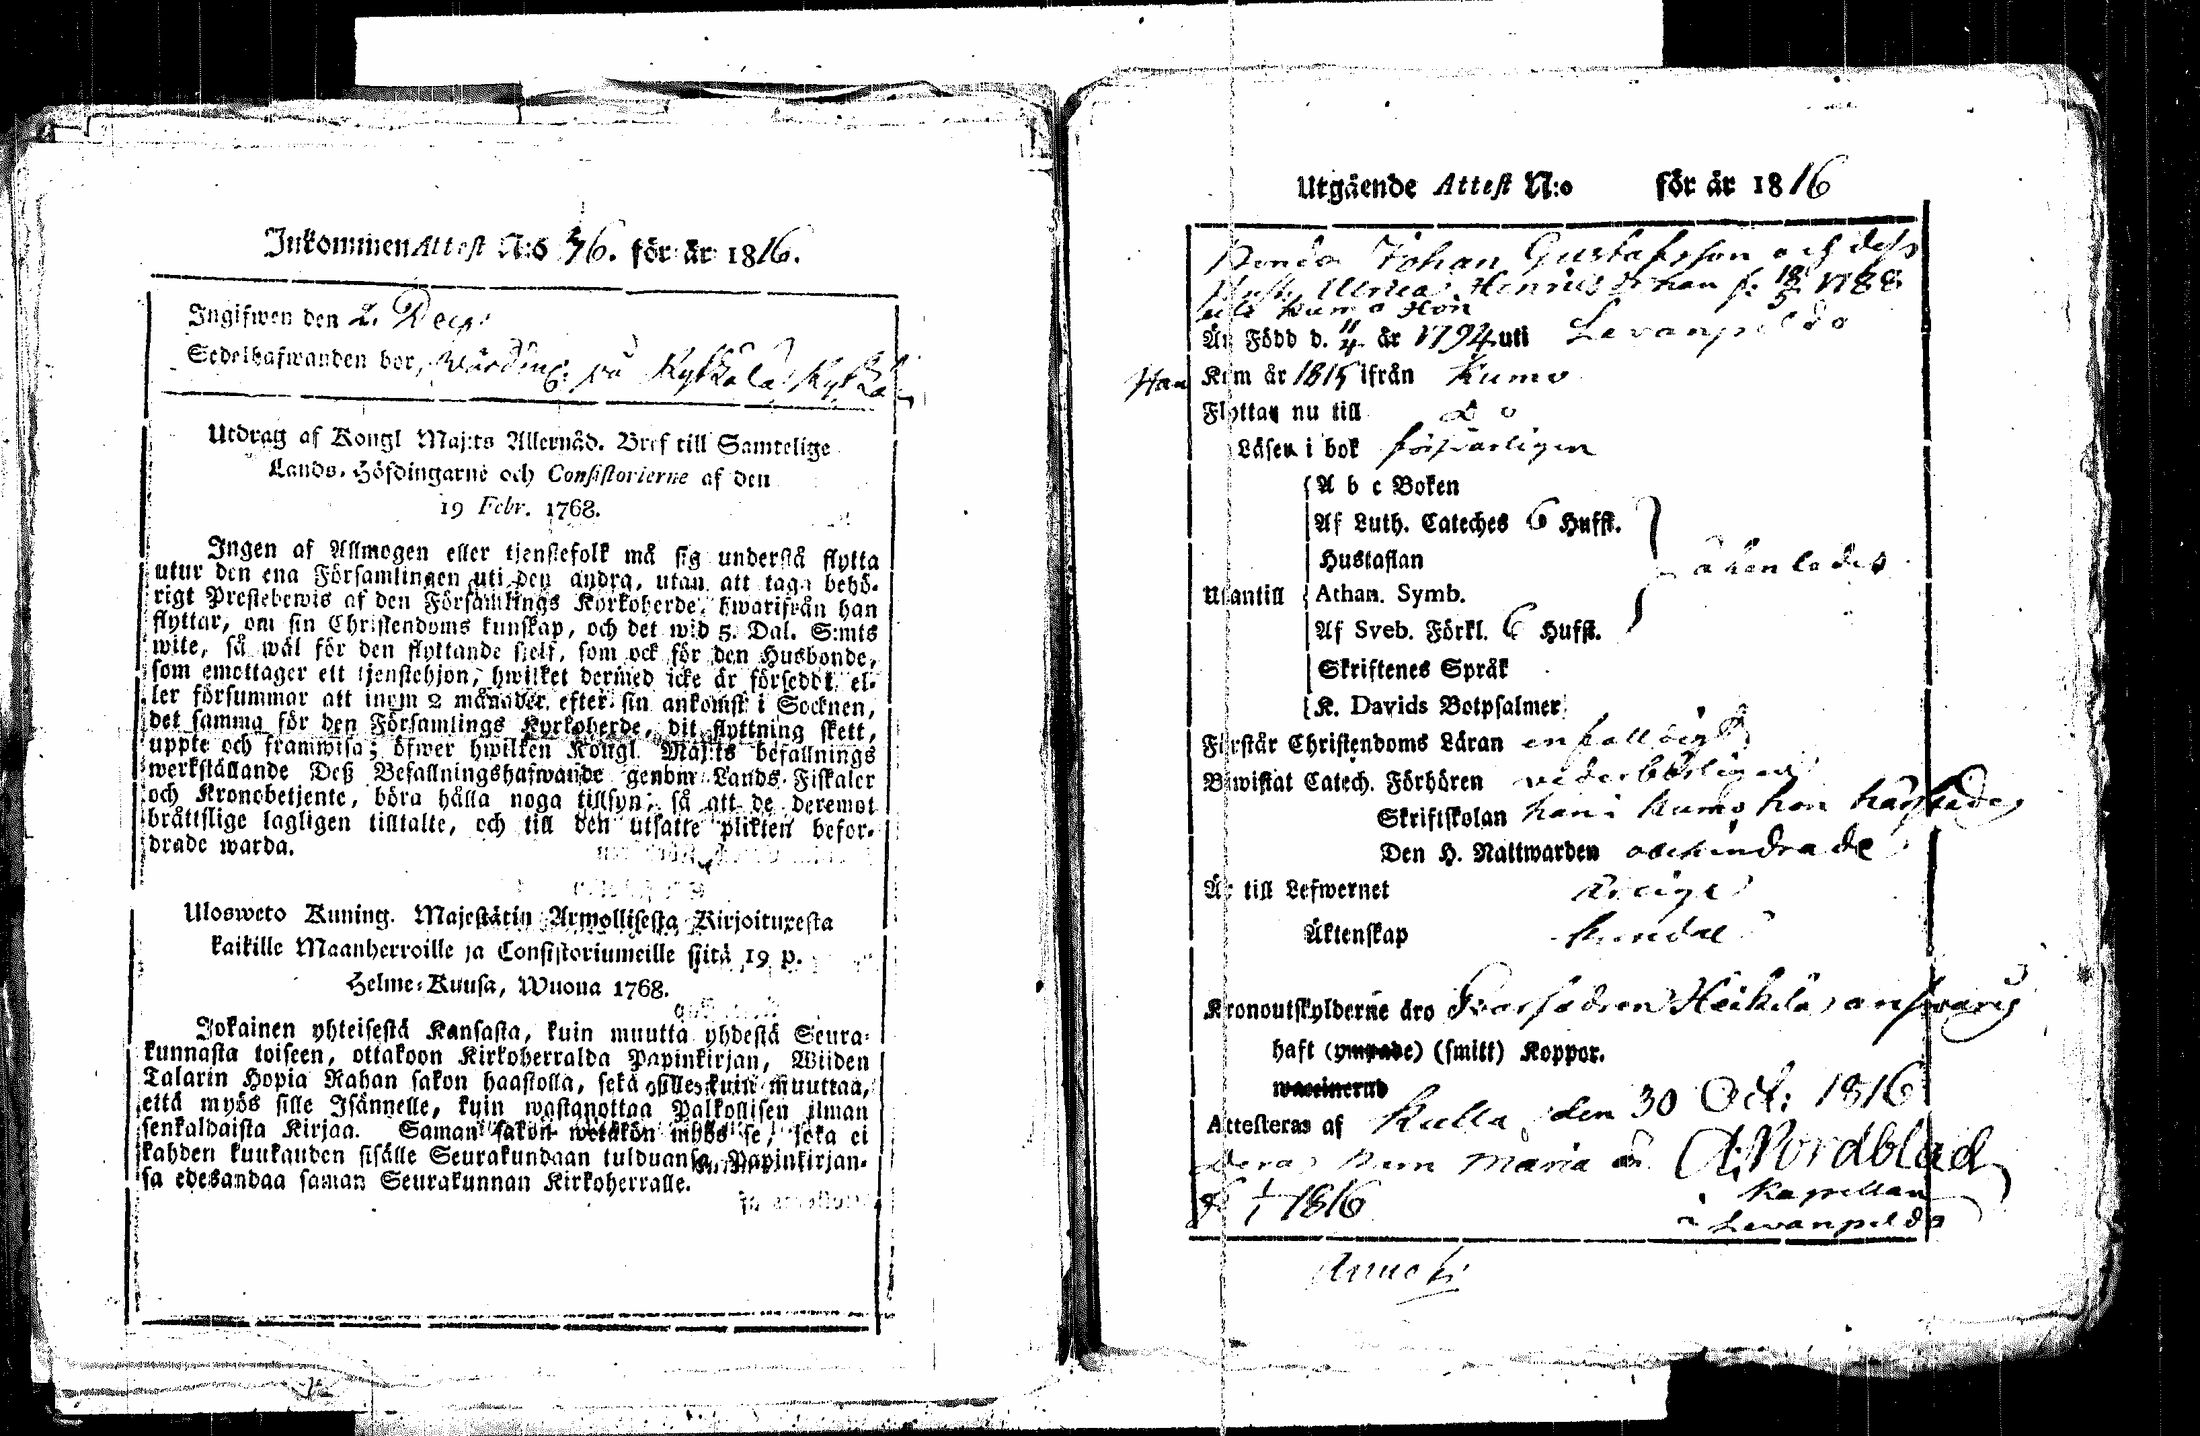 Inkommen Attest N:o 76. för år 1816.
Ingifwen den 2. Decr:
Sedelhafwanden bor, på Kyttälä
Utdrag af Kongl Maj:ts Allernåd. Bref till Samtelige
Lands-Höfdingarne och Consistorierne af den
19 Febr. 1768.
Ingen af Allmogen eller tjenstefolk må sig understå flytta
utur den ena Församlingen uti den andra, utan att taga behö-
rigt Prestebewis af den Församlings Kyrkoherde, hwarifrån han
flyttar, om sin Christendoms kunskap, och det wid 5. Dal. S:mts
wite, så wäl för den flyttande sjelf, som ock för den Husbonde,
som emottager ett tjenstehjon, hwilket dermed icke är försedt, el-
ler försummar att inom 2 månader efter sin ankomst i Socknen,
det samma för den Församlings Kyrkoherde, dit flyttning skett,
uppte och framwisa; öfwer hwilken Kongl. Maj:ts befallnings
werkställande Deß Befallningshafwande genom Lands-Fiskaler
och Kronobetjente, böra hålla noga tillsyn, så att de deremot
bråttslige lagligen tilltalte, och till den utsatte plikten befor-
drade warda.
Ulosweto Kuning. Majestätin Armollisesta Kirjoituxesta
kaikille Maanherroille ja Consistoriumeille siitä 19 p.
Helme-Kuusa, Wuona 1768.
Jokainen yhteisestä Kansasta, kuin muutta yhdestä Seura-
kunnasta toiseen, ottakoon Kirkoherralda Papinkirjan, Wiiden
Talarin Hopia Rahan sakon haastolla, sekä sille, kuin muuttaa,
että myös sille Isännelle, kuin wastanottaa Palkollisen ilman
senkaldaista Kirjaa. Saman sakon wetäkön myös se, joka ei
kahden kuukauden sisälle Seurakundaan tulduansa, Papinkirjan-
sa edesandaa saman Seurakunnan Kirkoherralle.
Utgående Attest N:o för år 1816
Bonden Johan Gustafsson och dess
Hust. Ulrica Henricsd: han f: 18/5 1788
uti Kumo Hon
Är Född d. 11/4 år 1794 uti Levanpeldo
Han Kom år 1815 ifrån Kumo
Flyttar nu till Do
Läsen i bok försvarligen
A b c Boken
Af Luth. Cateches 6 Hufst.
Hustaflan
Utantill Athan. Symb.
Af Sveb. Förkl. 6 Hufst.
Skriftenes Språk
K. Davids Botpsalmer
Förstår Christendoms Läran enfalldigt
Biwistat Catech. Förhören vederbörligen
Skriftskolan han i Kumo hon
Den H. Nattwarden obehindrade
Är till Lefwernet
Äktenskap
Kronoutskylderne äro Heikkilä answarig
haft (ympade) (smitt) Koppor.
waccinerad
Attesteras af Kulla den 30 Oct: 1816
Deras Maria A. Nordblad
f. 1/1 1816 Kapellan
i Levanpeldo